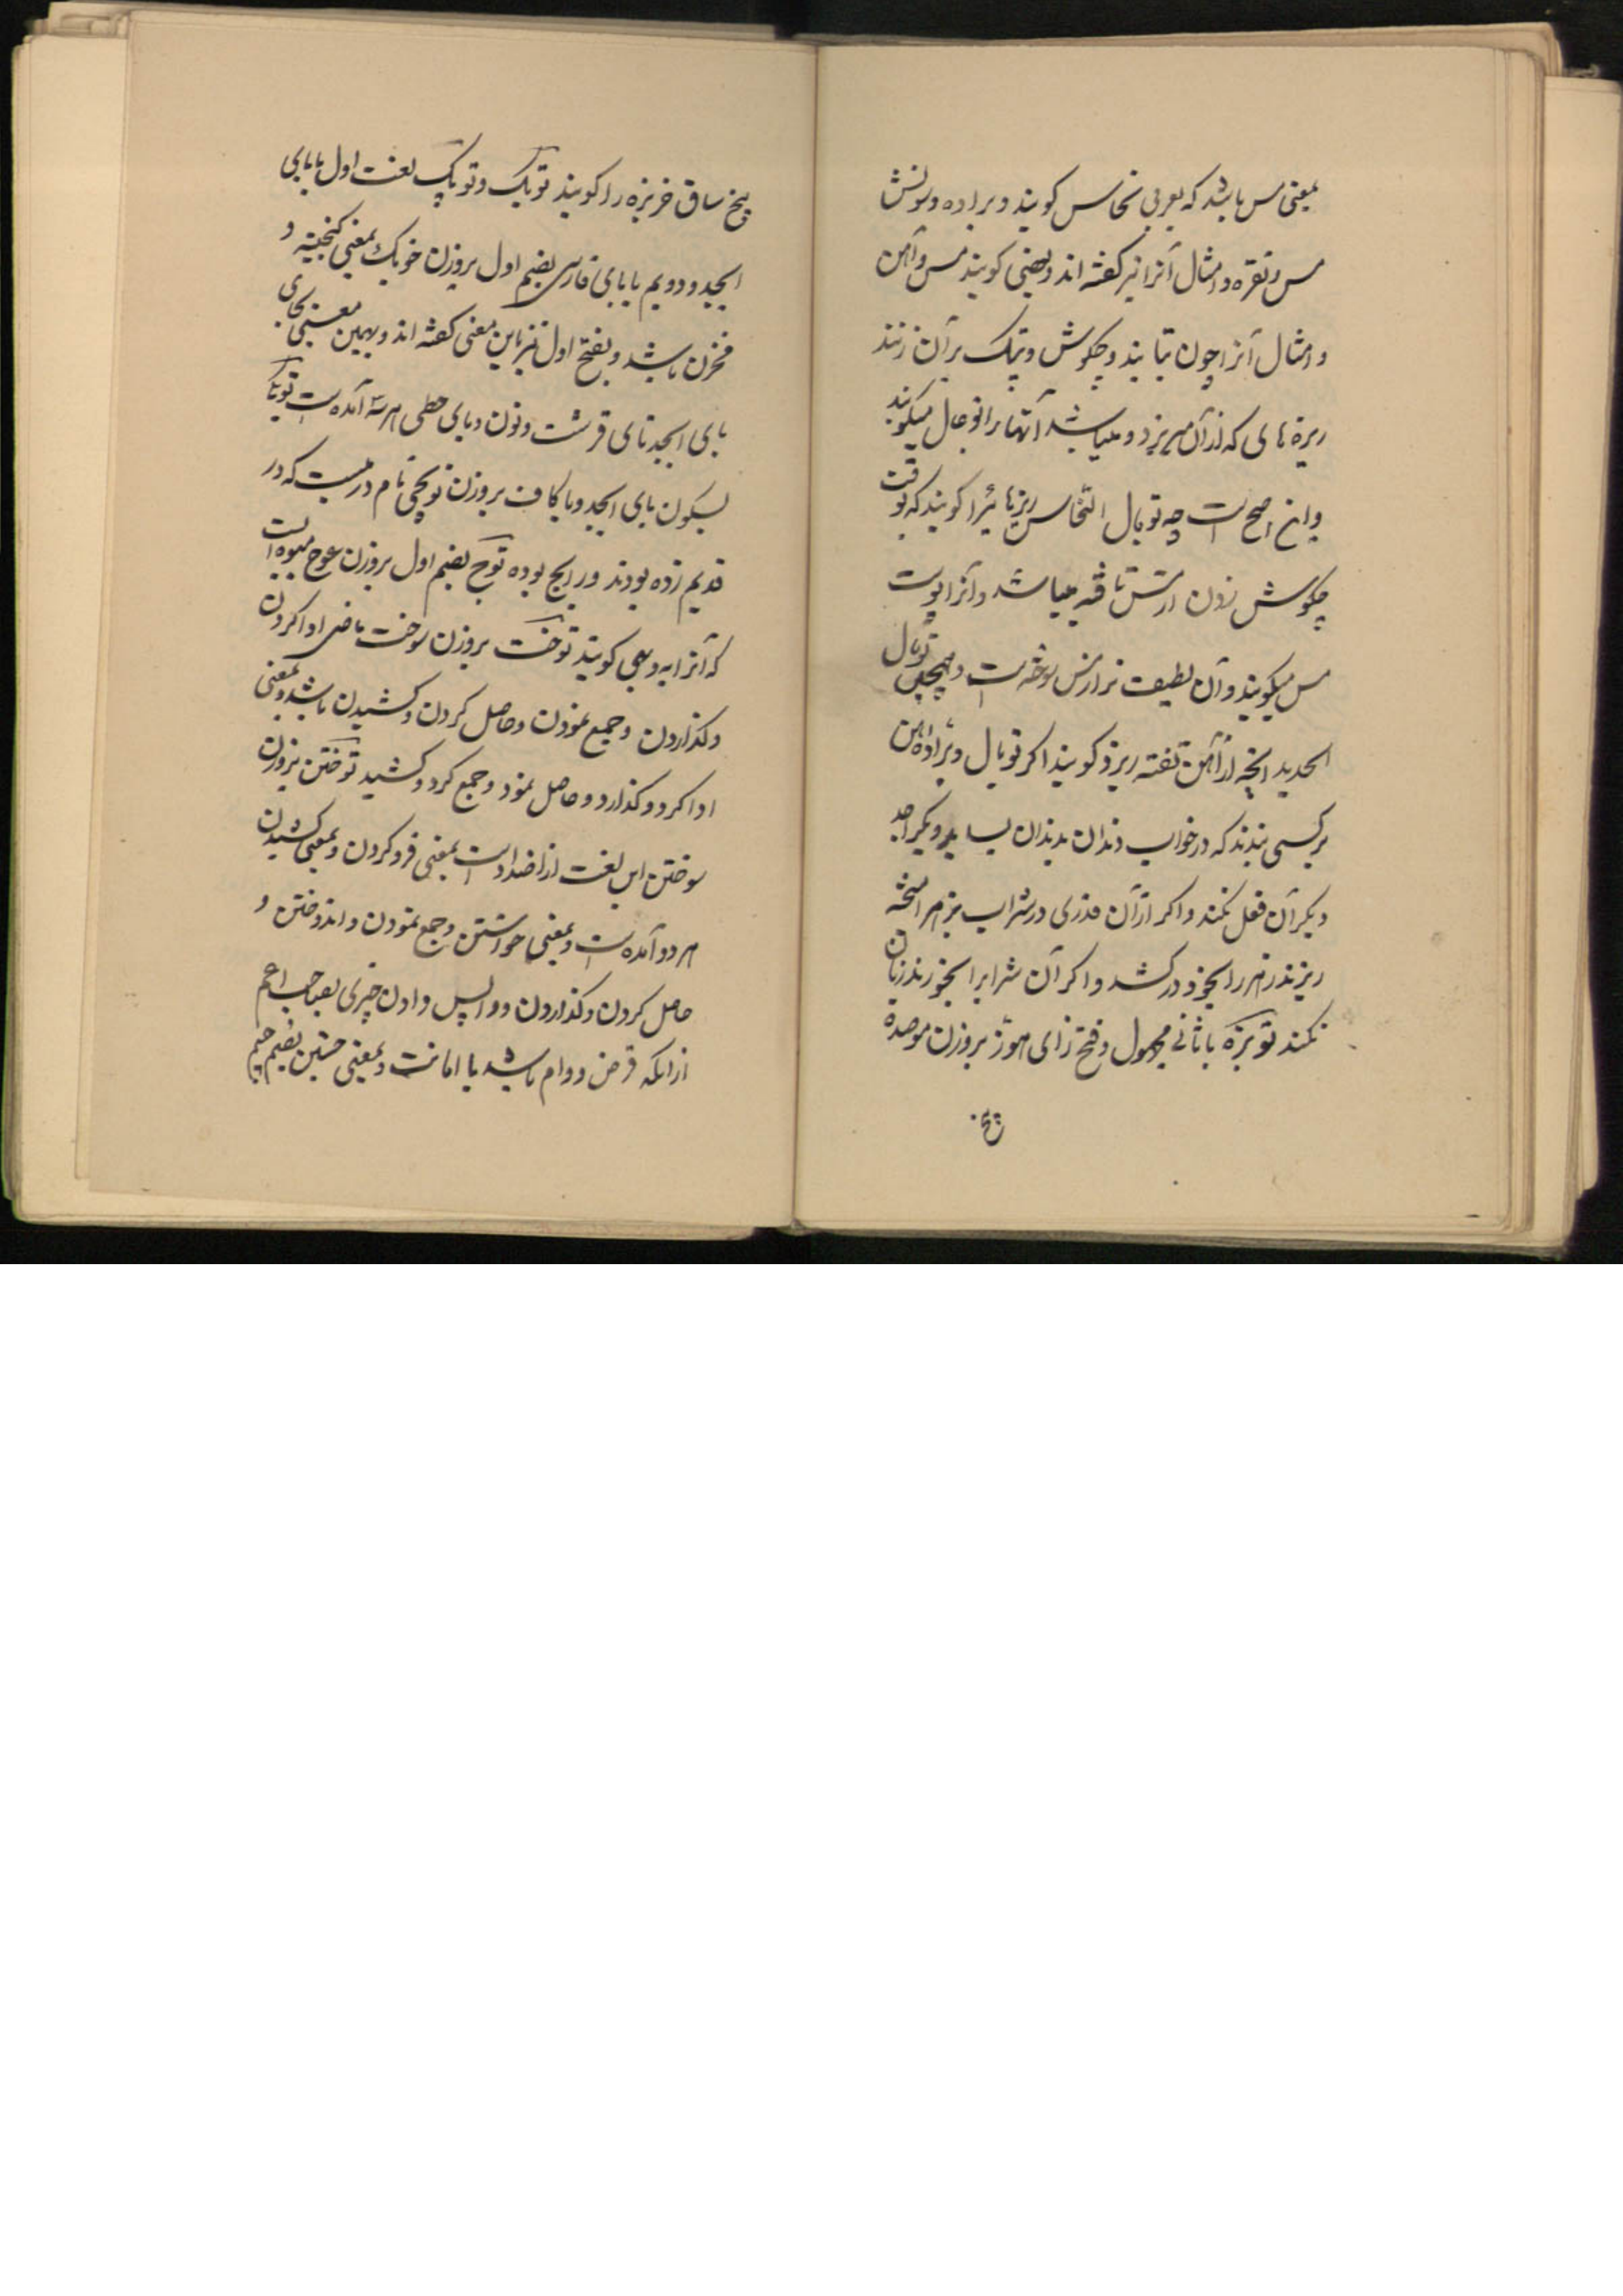 بمعنی مس باشد که بعربی نحاس کویند و براده و سونش
مس و نقره و امثال آنرا نیز کفته اند و بعضی کویند مس و آهن
و امثال آنرا چون بتابند و چکوش و پتک بر آن زنند
ریزه هائی که از آن میریزد و میپاشد آنها را توبال میکویند
و این اصح است چه توبال النحاس ریزهائیرا کویند که بوقت
چکوش زدن از مس تافته میپاشد و آنرا پوست
مس میکویند و آن لطیف تر از مس سوخته است و همچنین توبال
الحدید انچه از آهن تفته ریزد کویند اکر توبال و براده آهن
بر کسی بندند که در خواب دندان بدندان بساید دیکر
دیکر آن فعل نکند و اکر از آن قدری در شراب بزهر آمیخته
ریزند زهر را بخود درکشد و اکر آن شراب را بخورند زیان
نکند توبزه با ثانی مجهول و فتح زای هوز بروزن موصده
بیخ
بیخ ساق خربزه را کویند توبک و توپک لغت اول با بای
ابجد و دویم با بای فارسی بضم اول بروزن خوبک بمعنی کنجینه و
مخزن باشد و بفتح اول نیز باین معنی کفته اند و بهمین معنی بجای
بای ابجد تای قرشت و نون و یای حطی هر سه آمده است توبکی
بسکون بای ابجد و با کاف بروزن توپچی نام درمیست که در
قدیم زده بودند و رایج بوده توج بضم اول بروزن عوج میوه ایست
که آنرا به و بهی کویند توخت بروزن سوخت ماضی ادا کردن
و کذاردن و جمع نمودن و حاصل کردن و کشیدن باشد و بمعنی
ادا کرد و کذارد و حاصل نمود و جمع کرد و کشید توختن بروزن
سوختن این لغت از اضداد است بمعنی فرو کردن و بمعنی کشیدن
هر دو آمده است و بمعنی خواستن و جمع نمودن و اندوختن و
حاصل کردن و کذاردن و واپس دادن چیزی بصاحب اعم
از انکه قرض و وام باشد یا امانت و بمعنی جستن بضم جیم